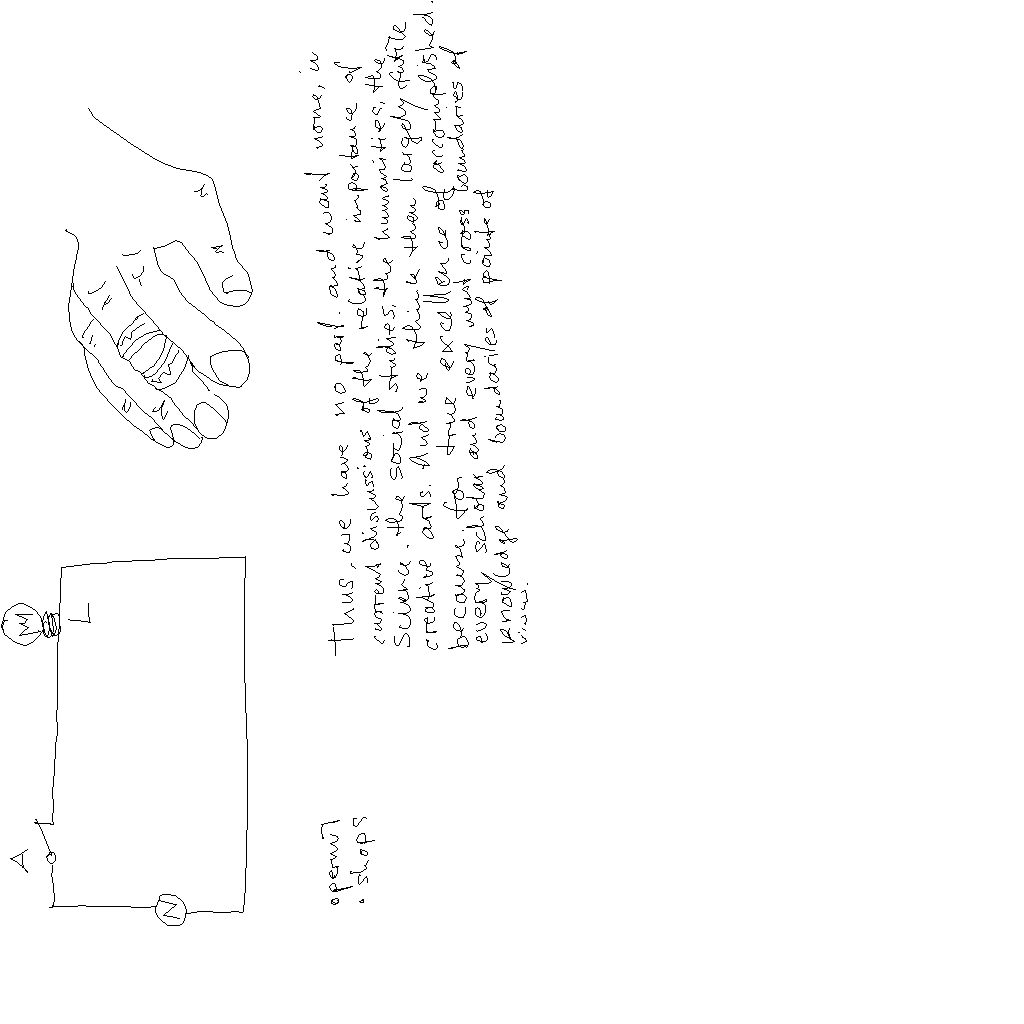 A
L
N
Thus, we have no part. and want none, in
current disussions of the relative importance of
Science. the social studies, the humanities, the
creative arts. And we think then largely futile
because. for true excellence of accomplished.
every scholar and every must cross boundaries of
knowledge and boundariles of points of
views.
permit
• shops